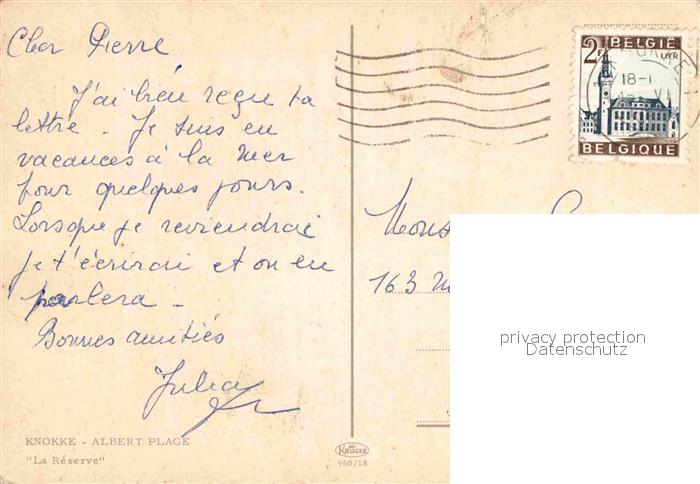 Cher Pierre
J'ai bien reçu ta
lettre. Je suis en
vacances à la mer
pour quelques jours.
Lorsque je reviendrai
je t'écrirai et on en
parlera -
Bonnes amitiés
Julia
KNOKKE - ALBERT PLAGE
"La Réserve"
KRÜGER
960/18
2F BELGIE
LIER
18-1
BELGIQUE
163
privacy protection
Datenschutz